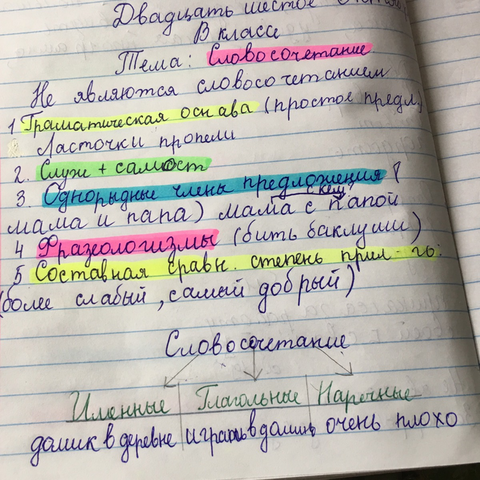 Двадцать шестое
В классе
Тема: Словосочетание
Не являются словосочетанием
1 Граматическая основа (простое предл.)
Ласточки пропели
2. Служ + самост
3. Однорыдные члены предложения (
мама и папа) мама с папой
с кем?
4 Фразеологизмы (бить баклуши)
5 Составная сравн. степень прил-го:
(более слабый, самый добрый)
Словосочетание
Именные Глагольные Наречные
домик в деревне играть в домик очень плохо